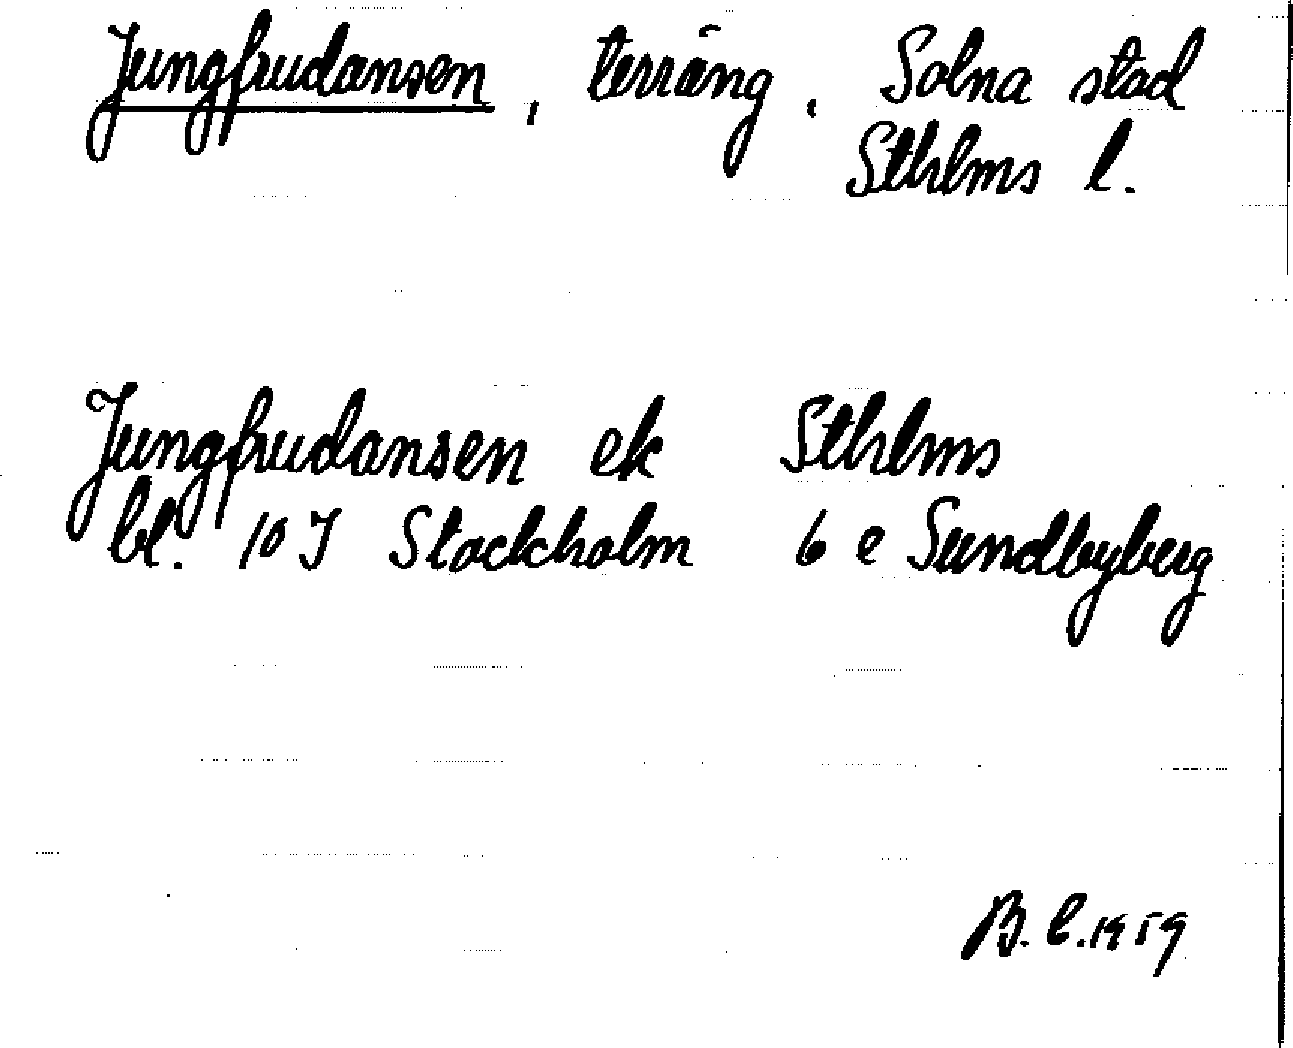 Jungfrudansen, terräng. Solna stad
Sthlms l.
Jungfrudansen ek Sthlms
bl. 10 I Stockholm 6 e Sundbyberg
B. l. 1959